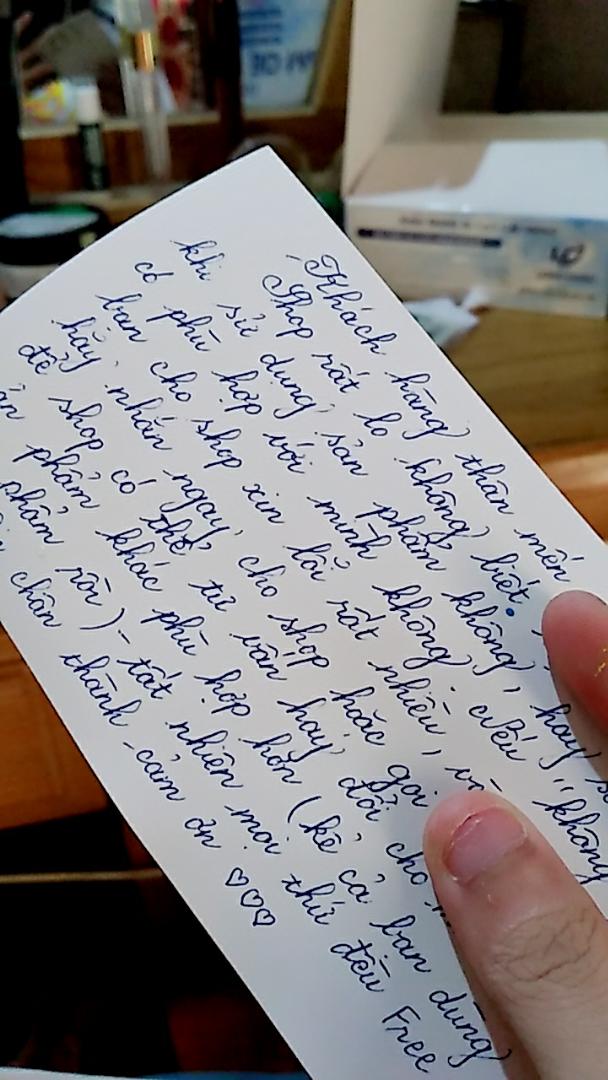 Khách hàng thân mến
Shop rất lo không biết
khi sử dụng sản phẩm không, hay
có phù hợp với mình không. Nếu "không
bạn cho shop xin lỗi rất nhiều, và
hãy nhắn ngay cho shop hoặc gọi
để shop có thể tư vấn hay đổi cho
phẩm khác phù hợp hơn (kể cả bạn dùng
phẩm rồi) - tất nhiên mọi thứ đều Free
chân thành cảm ơn ♡♡♡